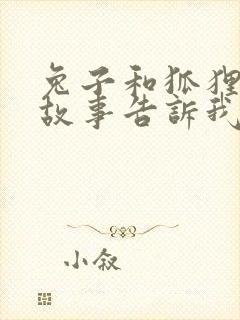 兔子和狐狸
故事告訴我
小叙